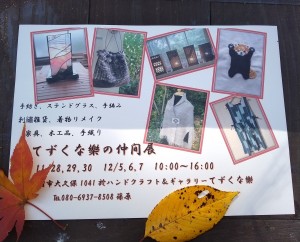 手紡ぎ、ステンドグラス、手編み
刺繍雑貨、着物リメイク
家具、木工品、手織り
てずくな樂の仲间展
11/28,29,30 12/5,6,7 10:00〜16:00
市大久保1041 於ハンドクラフト&ギャラリーてずくな樂
Tel 080-6937-8508 篠原